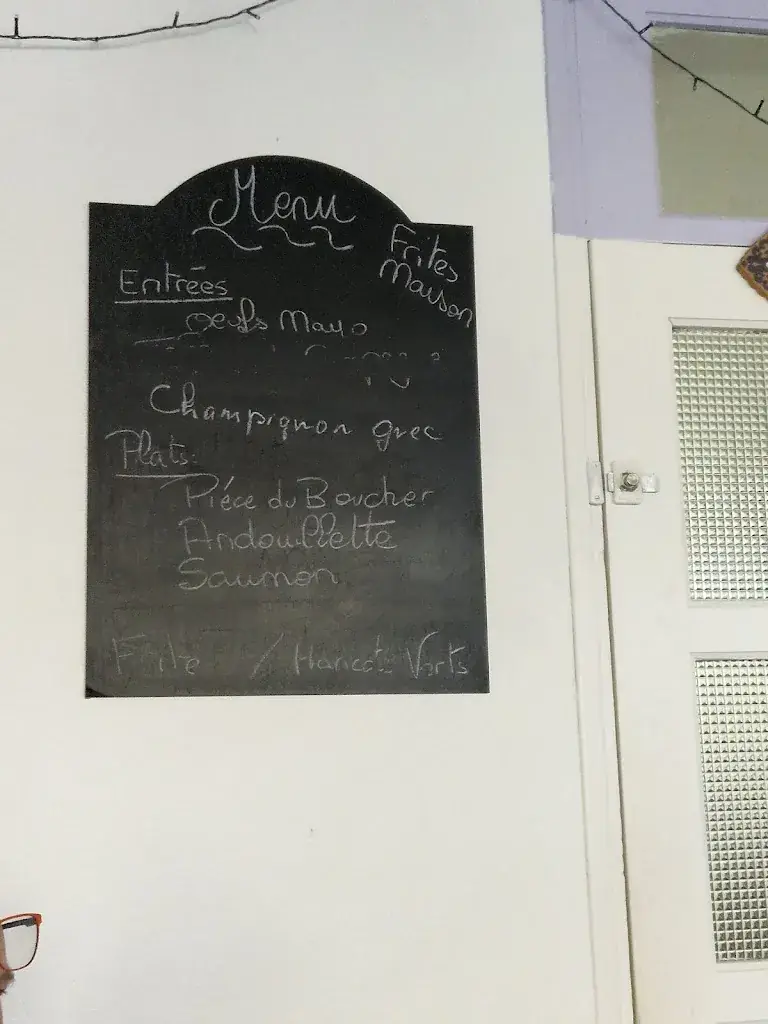 Menu
Frites
Maison
Entrées
oeufs Mayo
Champignon grec
Plats
Piéce du Boucher
Andouillette
Saumon
Frite / Haricots Verts